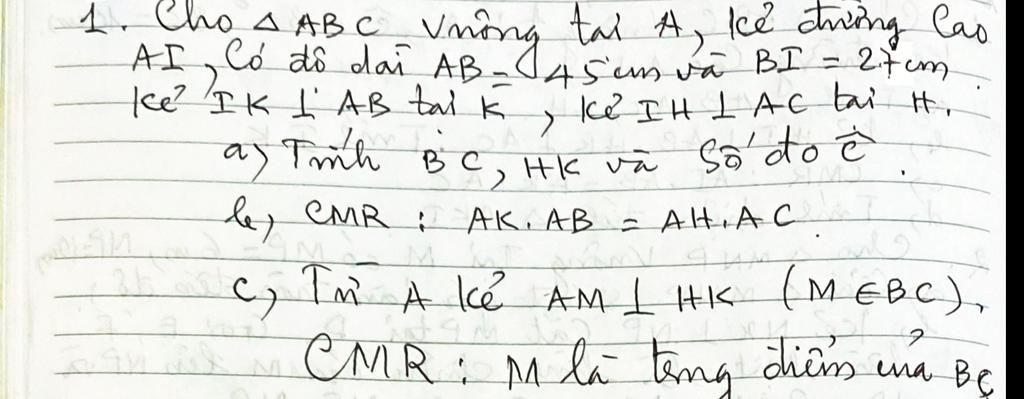 1. Cho △ ABC vuông tại A, kẻ đường cao
AI, Có độ dài AB = 45cm và BI = 27cm
kẻ IK ⊥ AB tại K, kẻ IH ⊥ AC tại H.
a, Tính BC, HK và số đo Ĉ.
b, CMR : AK.AB = AH.AC
c, Từ A kẻ AM ⊥ HK (M ∈ BC).
CMR : M là trung điểm của BC